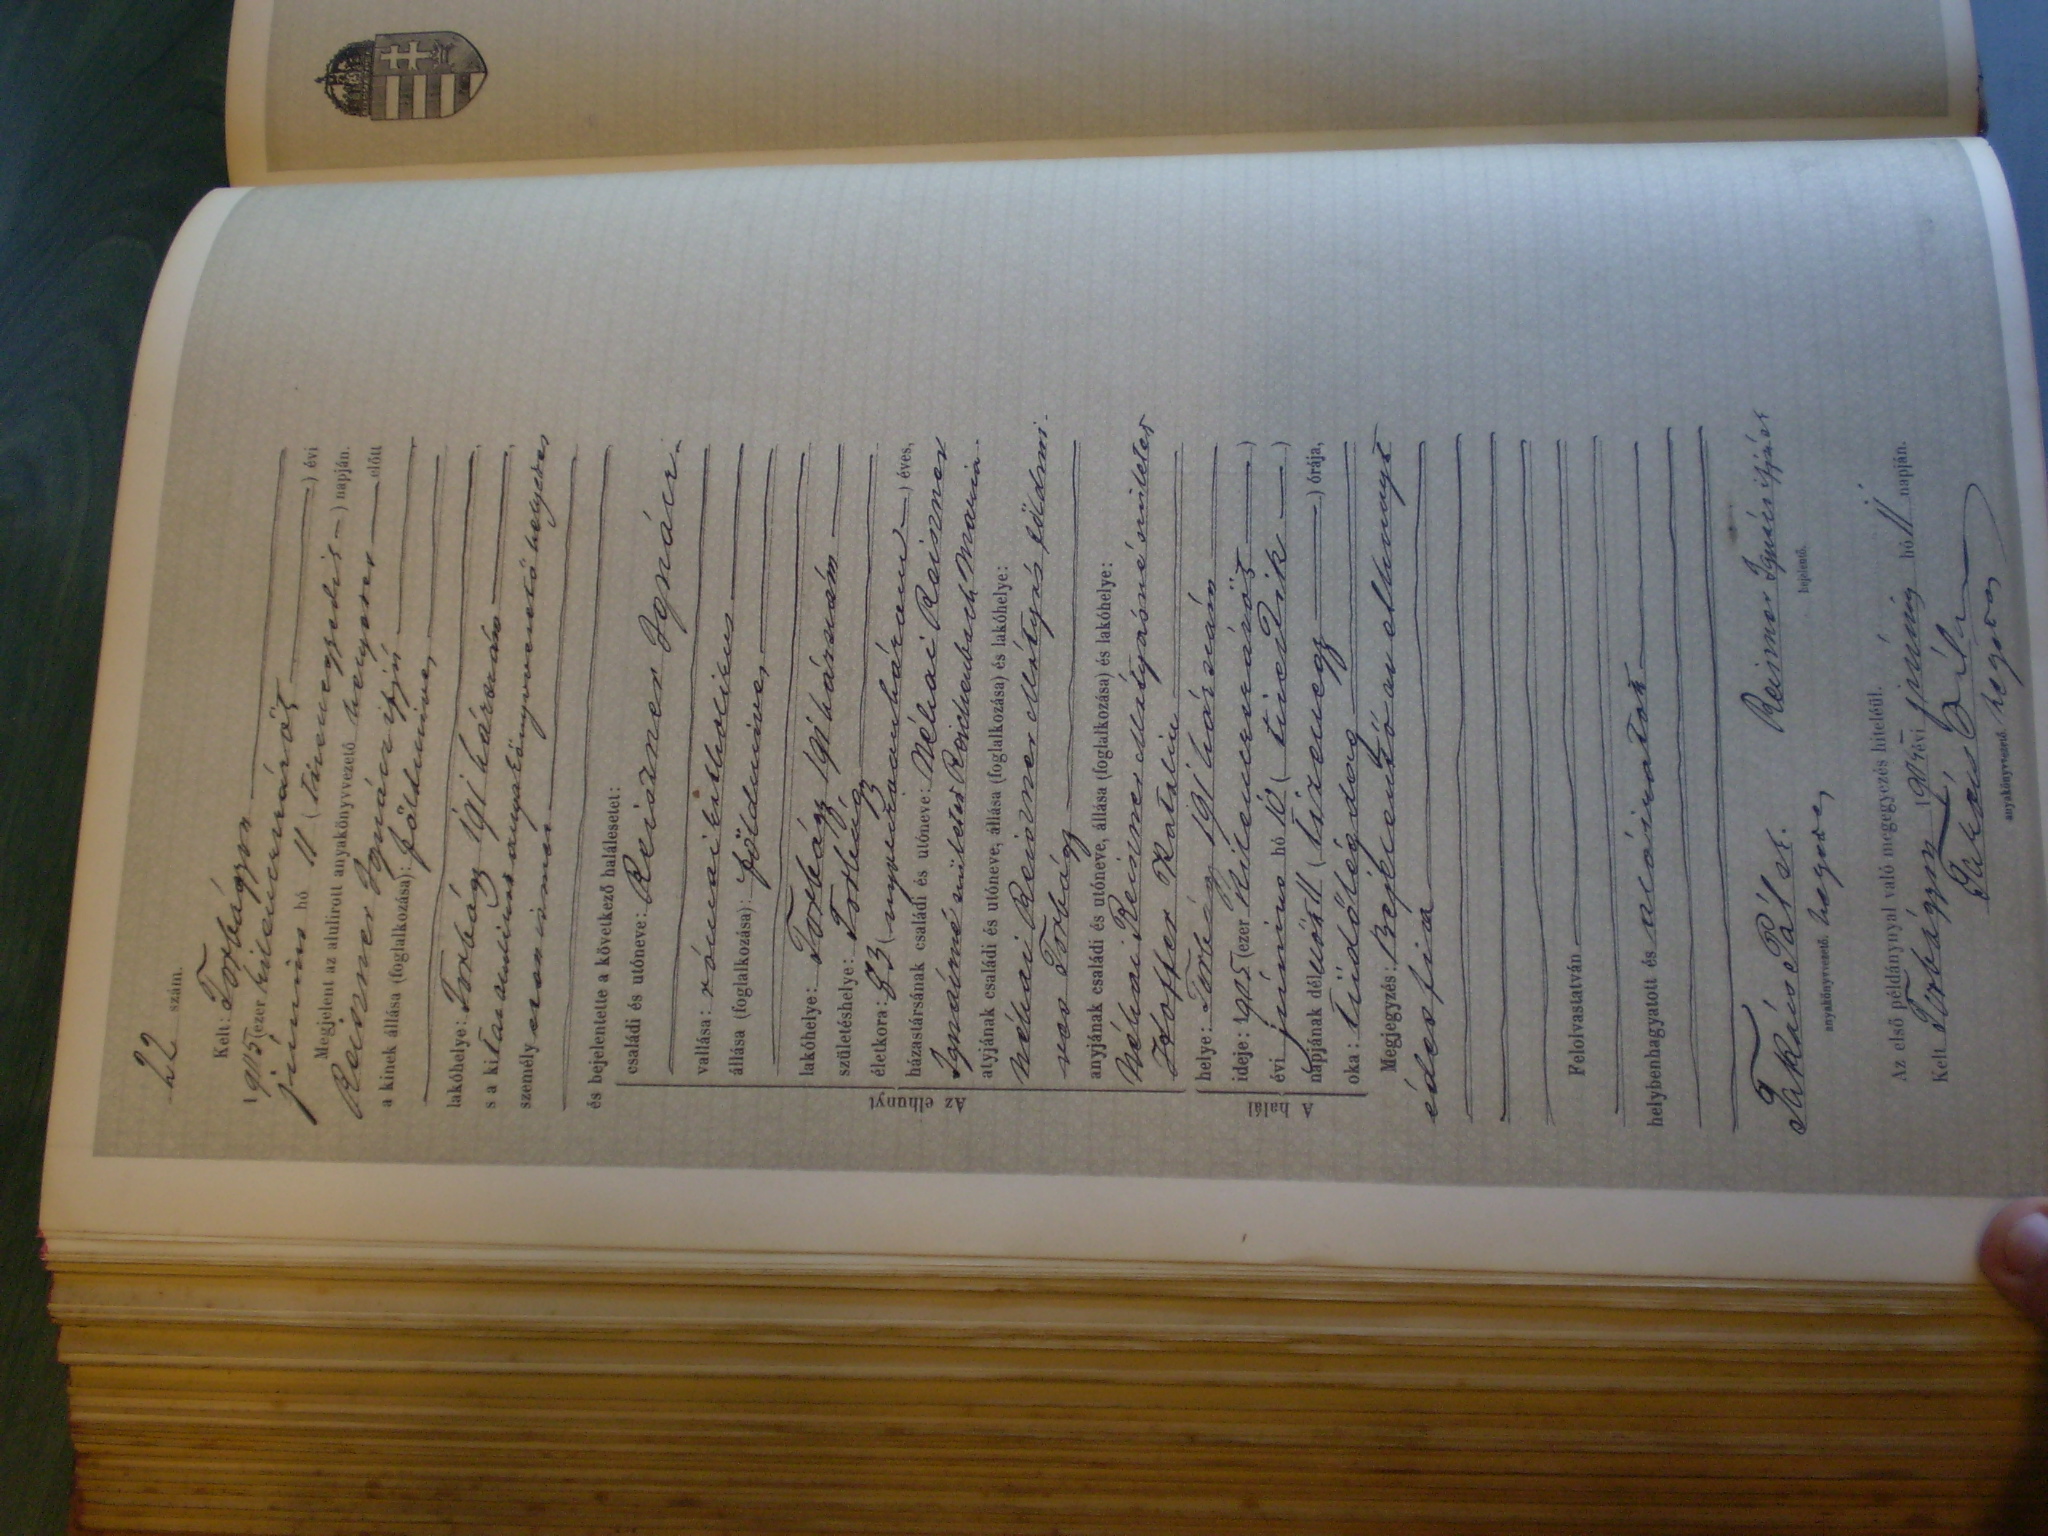 22 szám.
Kelt: Torbágyon
1915 (ezer kilencszáz
június hó 11 (tizenegyedik) évi
Megjelent az alulirott anyakönyvvezető helyettes előtt napján.
Reiszner Ignácz ifjú
a kinek állása (foglalkozása): földmives,
lakóhelye: Torbágy 191 házszám
s a kit az alulirott anyakönyvvezető helyettes
személyesen ismer
és bejelentette a következő halálesetet:
Az elhunyt
családi és utóneve: Reiszner Ignácz.
vallása: római katholikus
állása (foglalkozása): földmives,
lakóhelye: Torbágy 191 házszám
születéshelye: Torbágy
életkora: 83 (nyolczvanhárom) éves,
házastársának családi és utóneve: Néhai Reiszner
Ignáczné született Reichenbach Mária.
atyjának családi és utóneve, állása (foglalkozása) és lakóhelye:
Néhai Reiszner Mátyás földmi-
ves Torbágy
anyjának családi és utóneve, állása (foglalkozása) és lakóhelye:
Néhai Reiszner Mátyásné született
Hoffer Katalin
A halál
helye: Torbágy 191 házszám
ideje: 1915 (ezer kilencszáz
évi június hó 10 (tizedik)
napjának délelőtt 11 (tizenegy) órája,
oka: tüdőlégdag
Megjegyzés: Bejelentő az elhunyt
édes fia
Felolvastatván
helybenhagyatott és aláiratott
Takács Pál sk.
anyakönyvvezető. helyettes,
Reiszner Ignácz ifjú sk
bejelentő.
Az első példánynyal való megegyezés hiteléül.
Kelt Torbágyon 1915 évi június hó 11 napján.
Takács Béla
anyakönyvvezető. helyettes